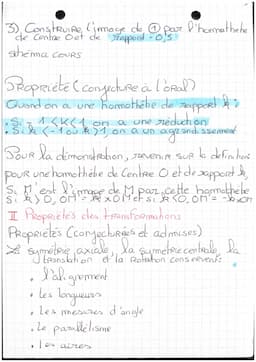 3) Construire l'image de ① par l'homothétie
de Centre O et de rapport -0,5
schéma cours
Propriété (conjecture à l'oral)
Quand on a une homothétie de rapport k:
• Si -1<k<1 on a une réduction
• Si k<-1 ou k>1, on a un agrandissement
Pour la démonstration, revenir sur la définition
pour une homothétie de Centre O et de rapport k,
Si M' est l'image de M par cette homothétie
Si k>0, OM' = k x OM et si k<0, OM' = -k x OM
II Propriétés des transformations
Propriétés (conjecturées et admises)
La symétrie axiale, la symétrie centrale, la
translation et la rotation conservent:
• l'alignement
• Les longueurs
• Les mesures d'angle
• Le parallélisme
• Les aires